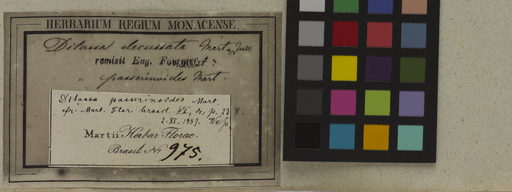 HERBARIUM REGIUM MONACENSE
Ditassa decussata Mart.
remisit Eug. Fournier
" passerinoides Mart.
Ditassa passerinoides Mart.
cfr. Mart. Flor. brasil. VI, p. 238.
2. XI. 1887.
Martii Herbar. Florae
Brasil. Nr. 975.